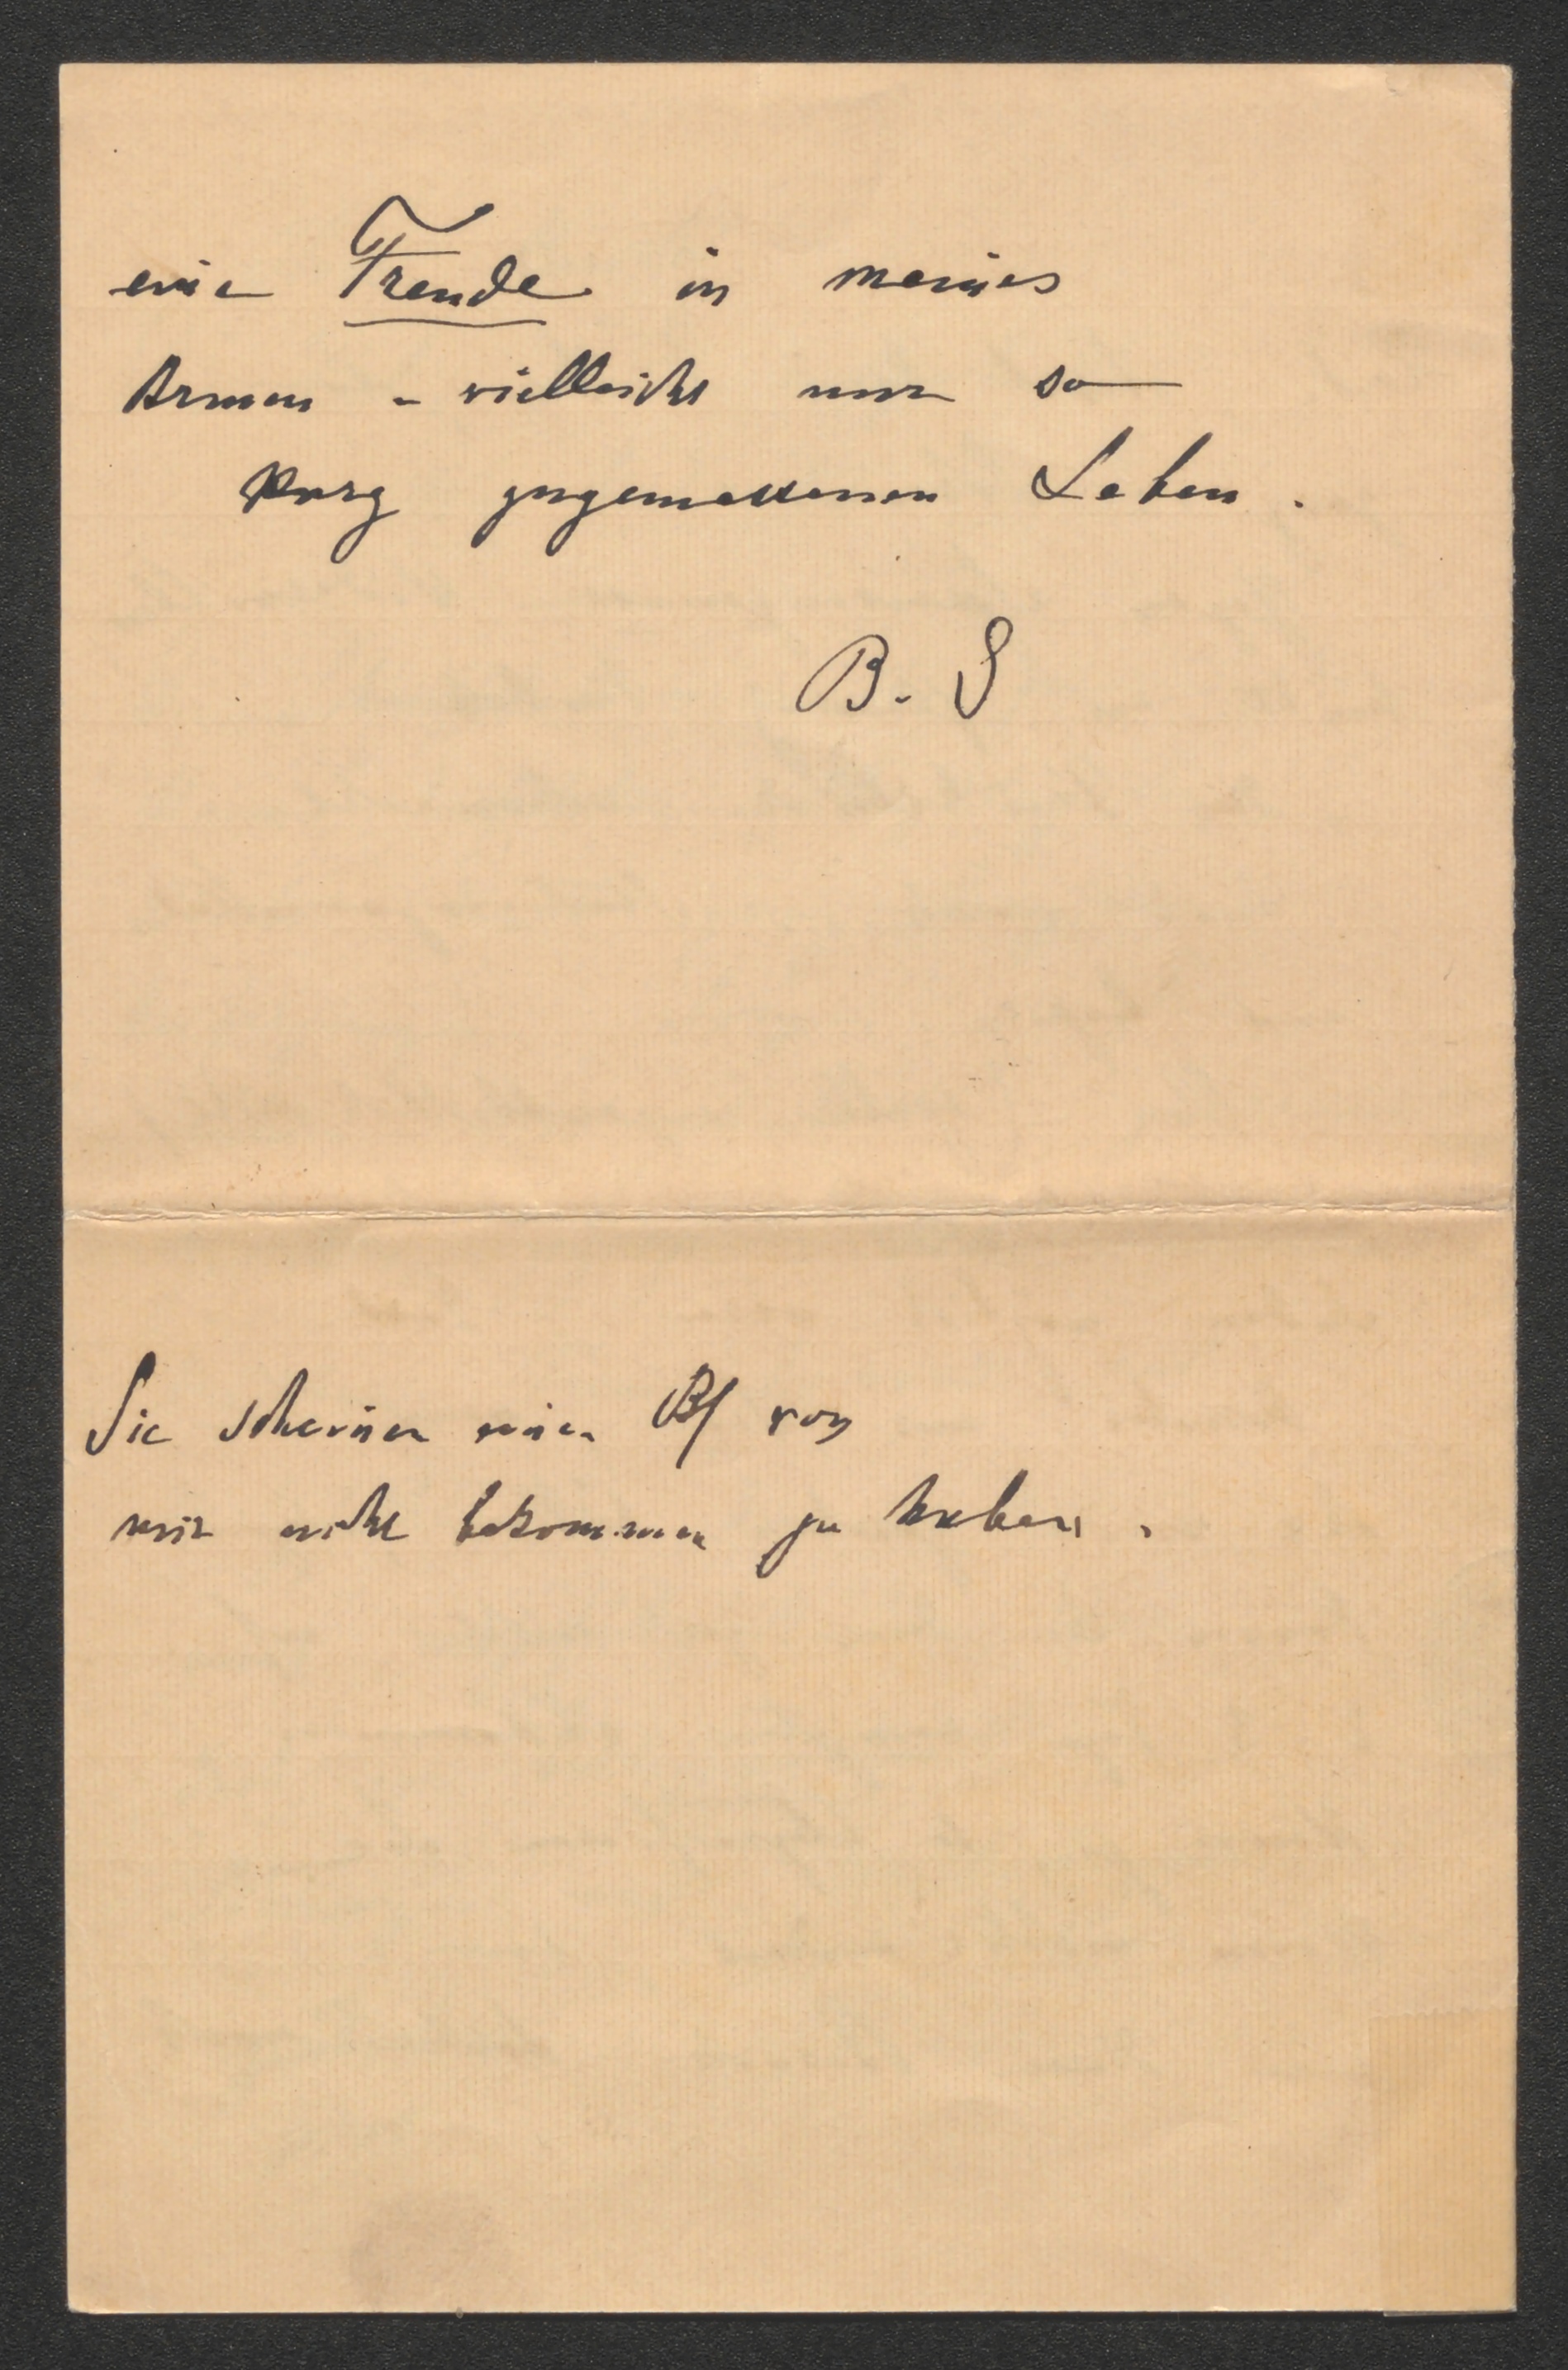 eine Freude in meines
Armen - vielleicht nur so
kurz zugemessenen Leben.
B. S
Sie scheinen einen Bf von
mir nicht bekommen zu haben.